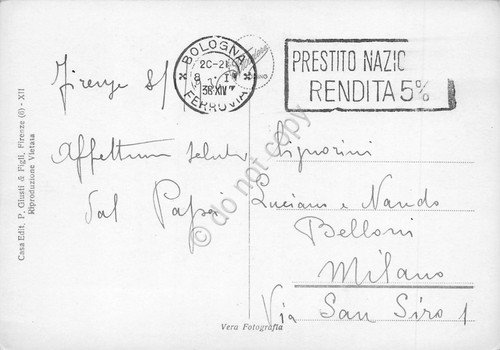 BOLOGNA
20-21
8 · I
36 XIV
FERROVIA
PRESTITO NAZIO
RENDITA 5%
Firenze 8/
Affettuosi saluti
dal Papà
Signorini
Luciano e Nando
Belloni
Milano
Via San Siro 1
Casa Edit. P. Giusti & Figli, Firenze (6) - XII
Riproduzione Vietata
Vera Fotografia
do not copy